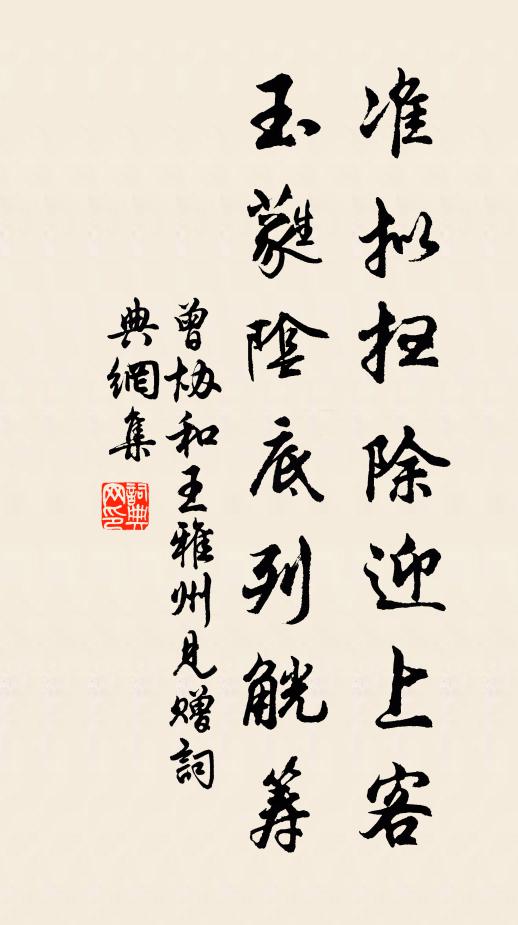 准拟扫除迎上客
玉蕤陰底列觥筹
曾协和王雅州見贈詞
典網集
詞典網印